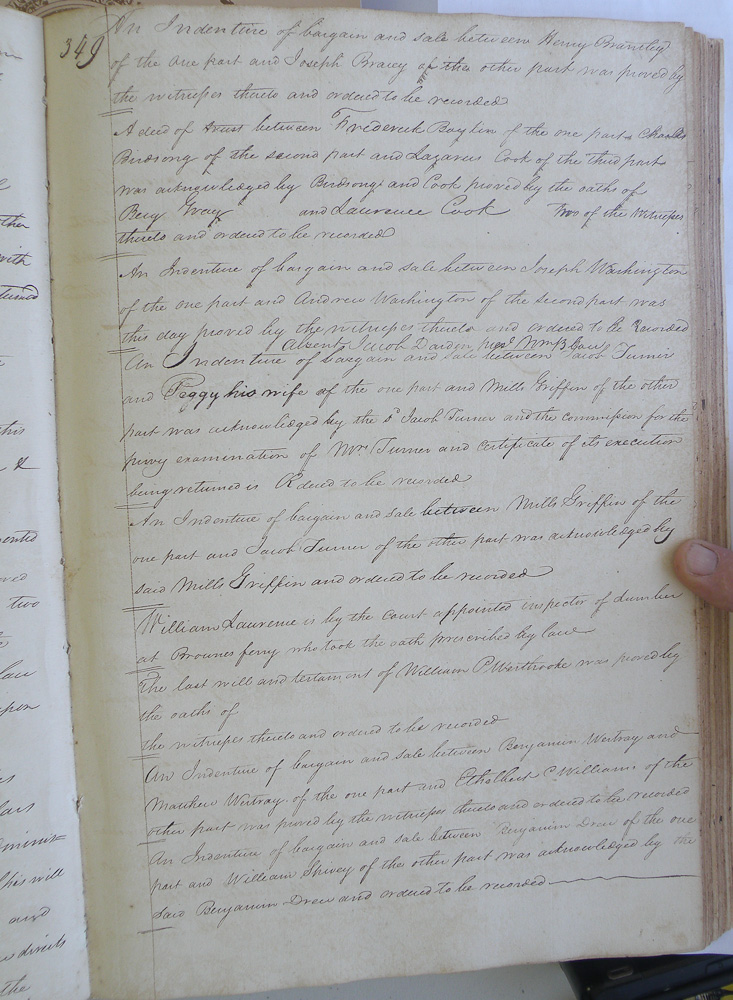 349
An Indenture of bargain and sale between Henry Brantley
of the one part and Joseph Bracey of the other part was proved by
the witnesses thereto and ordered to be recorded
A deed of trust between Frederick Boykin of the one part Charles
Birdsong of the second part and Lazarus Cook of the third part
was acknowledged by Birdsong and Cook proved by the oaths of
Benj Gray and Laurence Cook Two of the witnesses
thereto and ordered to be recorded
An Indenture of bargain and sale between Joseph Washington
of the one part and Andrew Washington of the second part was
this day proved by the witnesses thereto and ordered to be Recorded
Absent Jacob Darden, prest Wm B
An Indenture of bargain and sale between Jacob Turner
and Peggy his wife of the one part and Mills Griffin of the other
part was acknowledged by the sd Jacob Turner and the commission for the
privy examination of Mrs Turner and certificate of its execution
being returned is Ordered to be recorded
An Indenture of bargain and sale between Mills Griffin of the
one part and Jacob Turner of the other part was acknowledged by
said Mills Griffin and ordered to be recorded
William Laurence is by the Court appointed inspector of lumber
at Brownes ferry who took the oath prescribed by law
The last will and testament of William P Westbrooke was proved by
the oaths of
the witnesses thereto and ordered to be recorded
An Indenture of bargain and sale between Benjamin Westray and
Matthew Westray of the one part and Ethelbert C Williams of the
other part was proved by the witnesses thereto and ordered to be recorded
An Indenture of bargain and sale between Benjamin Drew of the one
part and William Spivey of the other part was acknowledged by the
said Benjamin Drew and ordered to be recorded